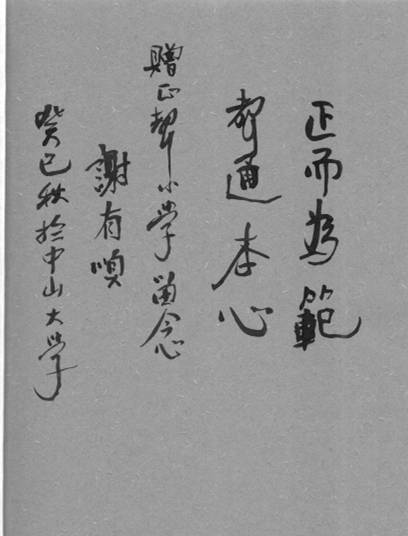 正而為範
聲通本心
贈正聲小學留念
謝有順
癸巳秋於中山大學